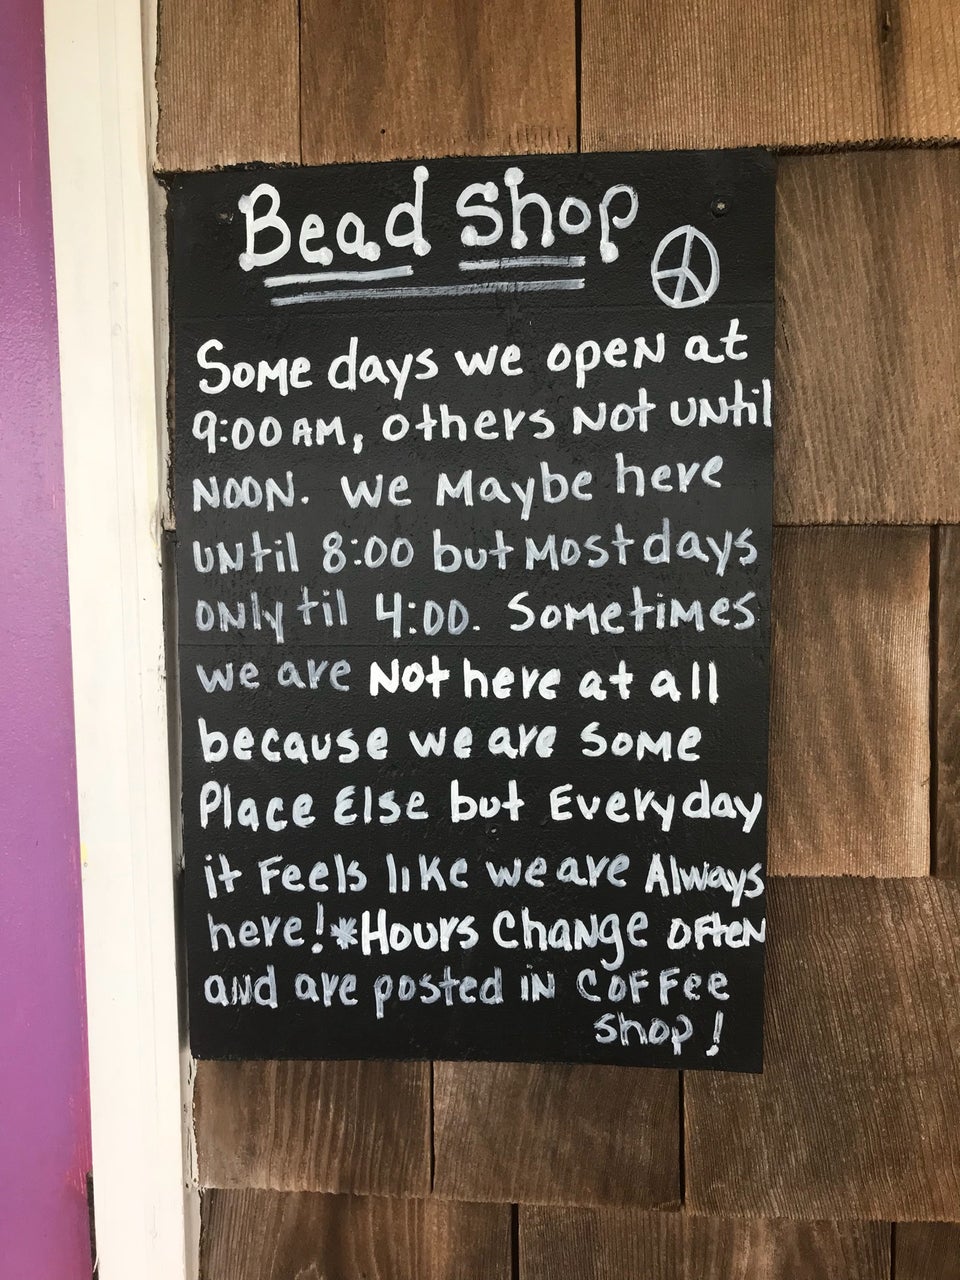 Bead Shop
Some days we open at
9:00 AM, others Not UNtil
NOON. We Maybe here
UNtil 8:00 but Most days
ONly til 4:00. Sometimes
we are Not here at all
because we are Some
Place Else but Everyday
it Feels like we are Always
here! *Hours Change OFteN
aNd are posted iN COFFee
Shop!